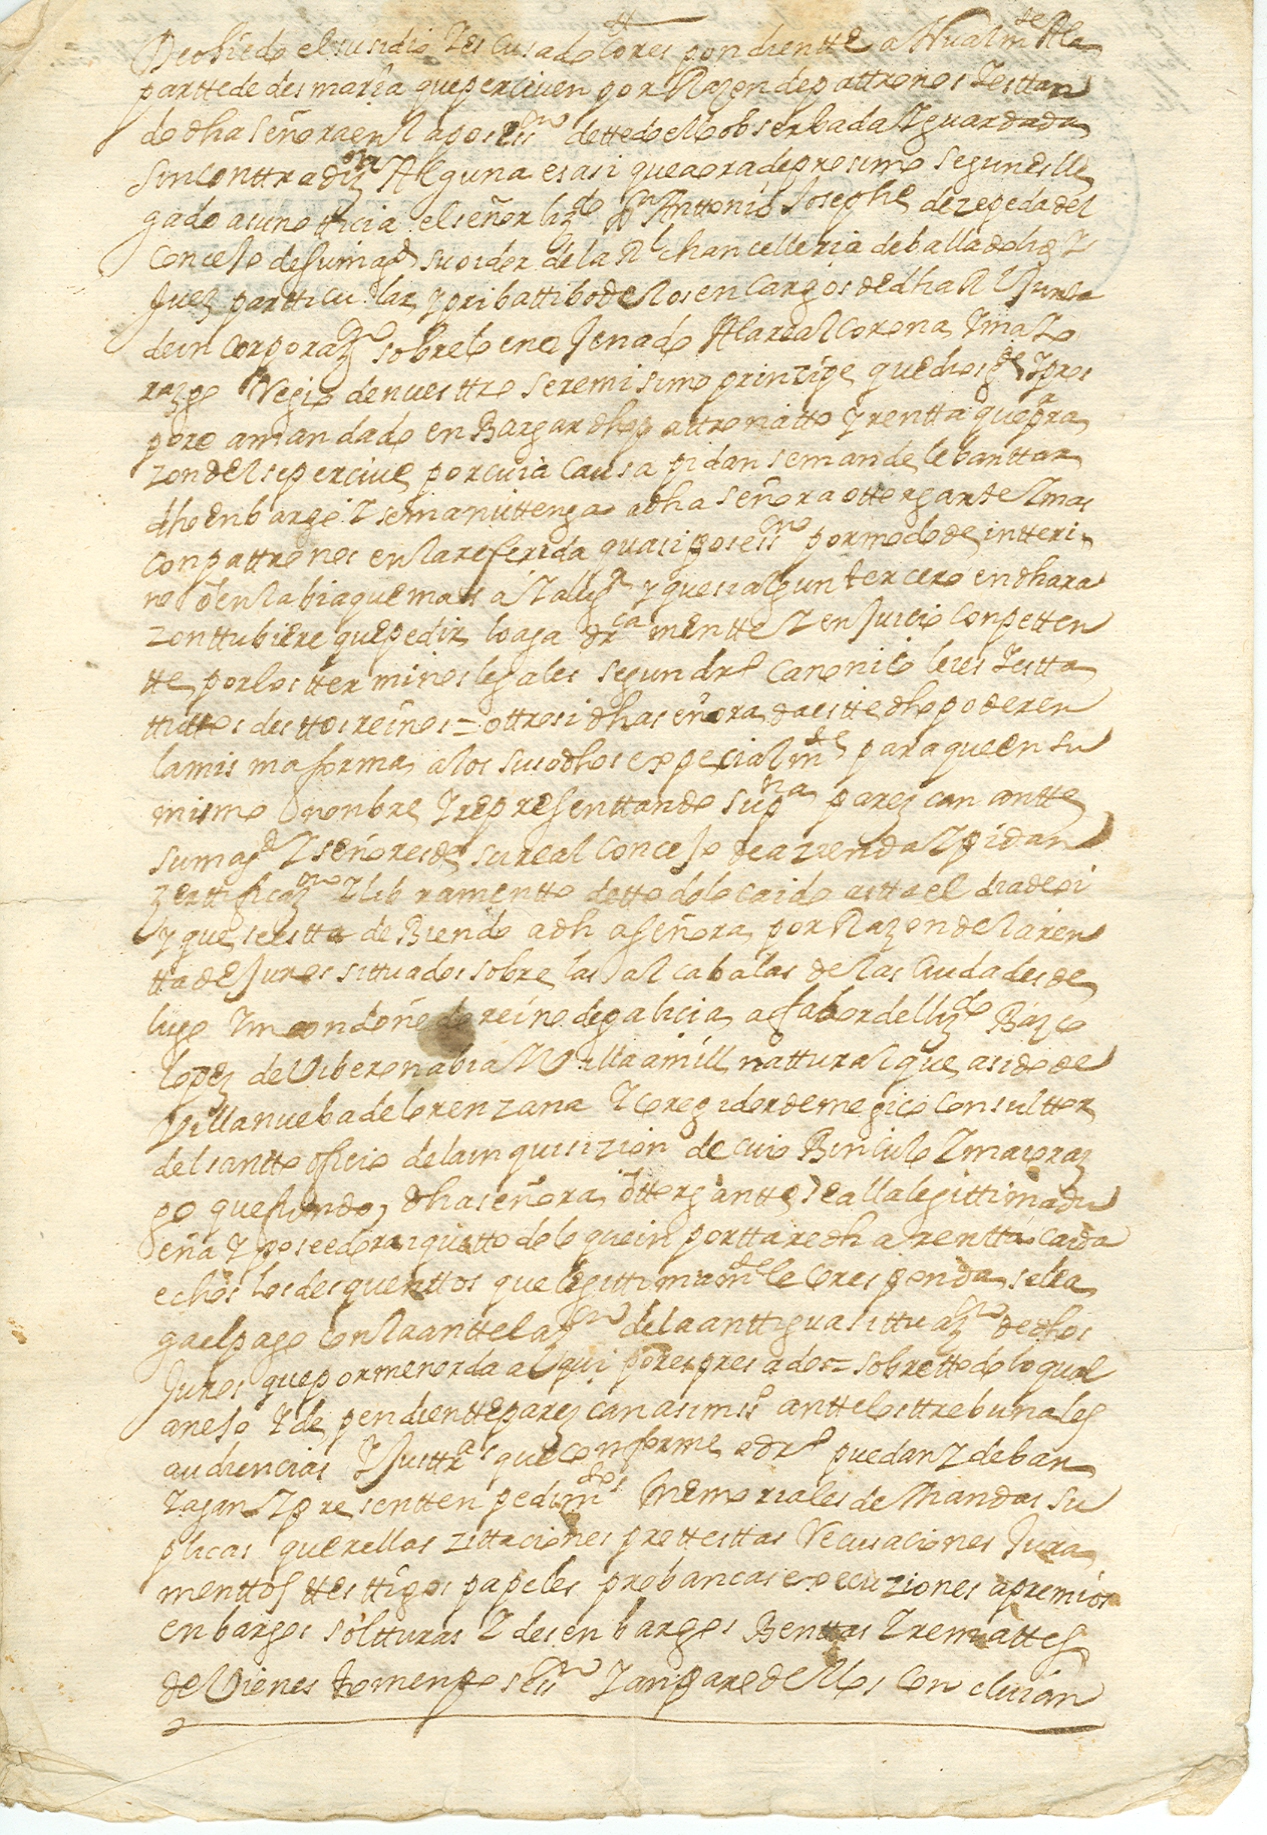 De obiedo el susidio y escusado corespondientte a nualmte A la
partte de desmeria que perciven por Razon de pattronos y esttan
do dha señora en la posesion de ttodo ello obserbada y guardada
sin conttradizn Alguna es asi que aora de prosimo segun es lle
gado a su notticia el señor lizdo Dn Anttonio Josephe de zepeda del
Concejo de su magd su oidor de la Rl chancelleria de balladolid y
Juez partticular y pribattibo de los encargos de dha Rl Junta
de incorporazn sobre lo enajenado A la real Corona y maio
razgo Regio de nuesttro serenisimo prinzipe que dios gde y pros
pere a mandado enbargar dho pattronatto y rentta que por ra
zon del se percive por cuia causa pidan se mande lebanttar
dho enbargo y se manuttenga a dha señora ottorgante y mas
conpattronos en la referida quasi posesn por modo de intteri
no o en la bia que mas aia lugr y que si algun tercero en dha ra
zon ttubiere que pedir lo aga drcamentte y en Juicio conpetten
tte por los tterminos legales segun dro Canonico leies y estta
ttuttos desttos reinos = ottrosi dha señora da estte dho poder en
la misma forma a los susodhos expecialmte para que en su
mismo nonbre y representtando su pna parezcan antte
su magd y señores de su real Concejo de azienda y pidan
zerttificazn y libramentto de ttodo lo caido astta el dia de oi
y que se estta debiendo a dha señora por Razon de la ren
tta de Juros sittuados sobre las alcabalas de las Ciudades de
lugo y mondoñedo reino de galicia a fabor del lizdo Bazco
lopez de Vibero nabia Villaamill natural que a sido de
Villanueba de lorenzana y coregidor de megico Consulttor
del santto oficio de la inquisizion de cuio Binculo y maioraz
go que fundo, dha señora ottorgantte se alla legittima du
eña y poseedora y que ttodo lo que inporttare dha rentta caida
echos los desquenttos que legittimamte le coresponda se le a
ga el pago con la anttelazn de la anttigua sittuazn de dhos
Juros que por menor da aqui por espresados = sobre ttodo lo qual
anejo y dependientte parezcan asimismo antte los ttrebunales
audiencias y Justtas que conforme a dro puedan y deban
y agan y presentten pedimtos memoriales demandas su
plicas querellas zittaciones prottesttas Recusaciones Jura
menttos ttesttigos papeles probancas execuziones apremios
enbargos soltturas y desenbargos Benttas y remattes
de Vienes tomen posesn y anparo dellos Concluian